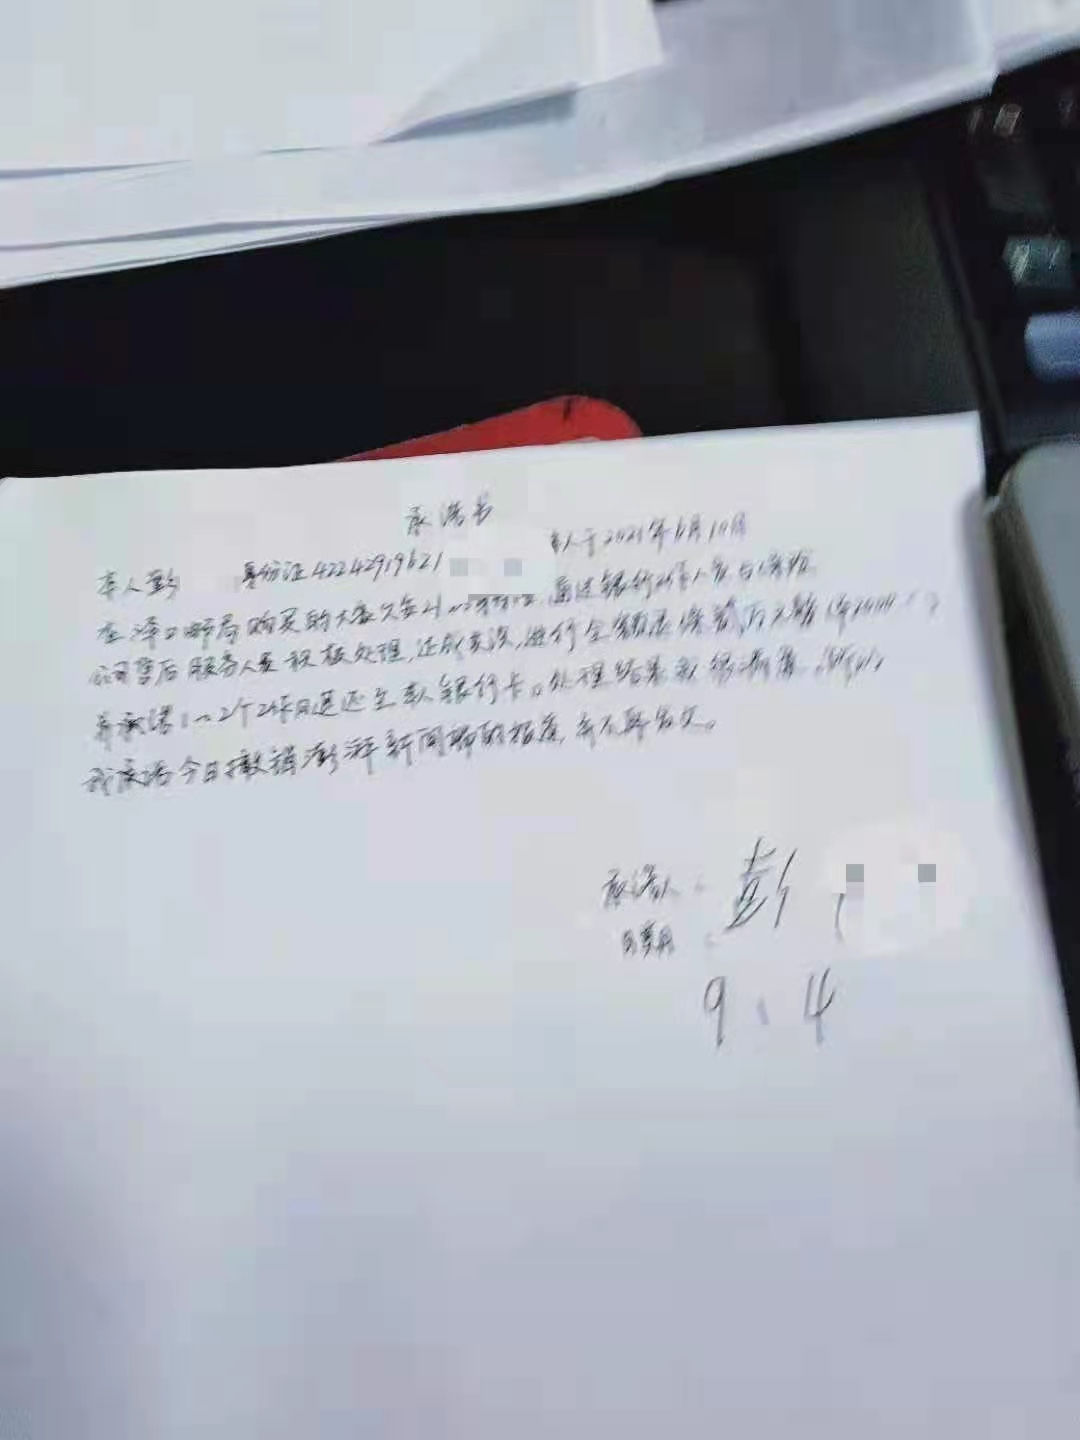 承诺书
本人彭 身份证42242919621 本人于2021年6月10日
在泽口邮局购买的大家久安 通过银行工作人员与保险
公司售后服务人员积极处理,达成共识,进行全额退保
并承诺1~2个工作日退还至彭银行卡。处理结果我很满意
我承诺今日撤销澎湃新闻网的报度,并不再

承诺人: 彭
日期:
9、4